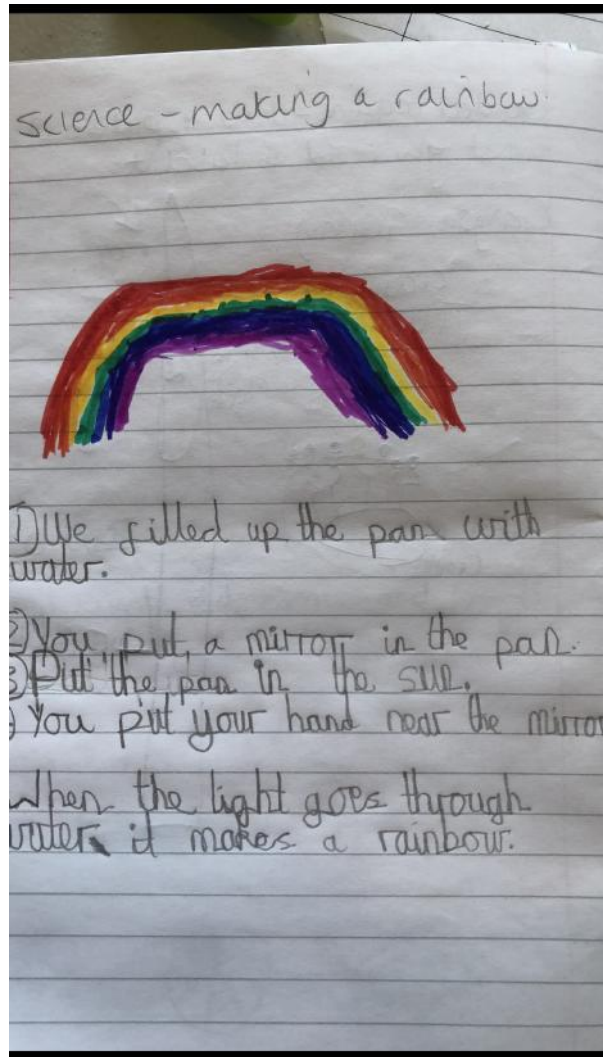 science - making a rainbow.
① We filled up the pan with
water.
② You put a mirror in the pan.
③ Put the pan in the sun.
) You put your hand near the mirror
When the light goes through
water it makes a rainbow.